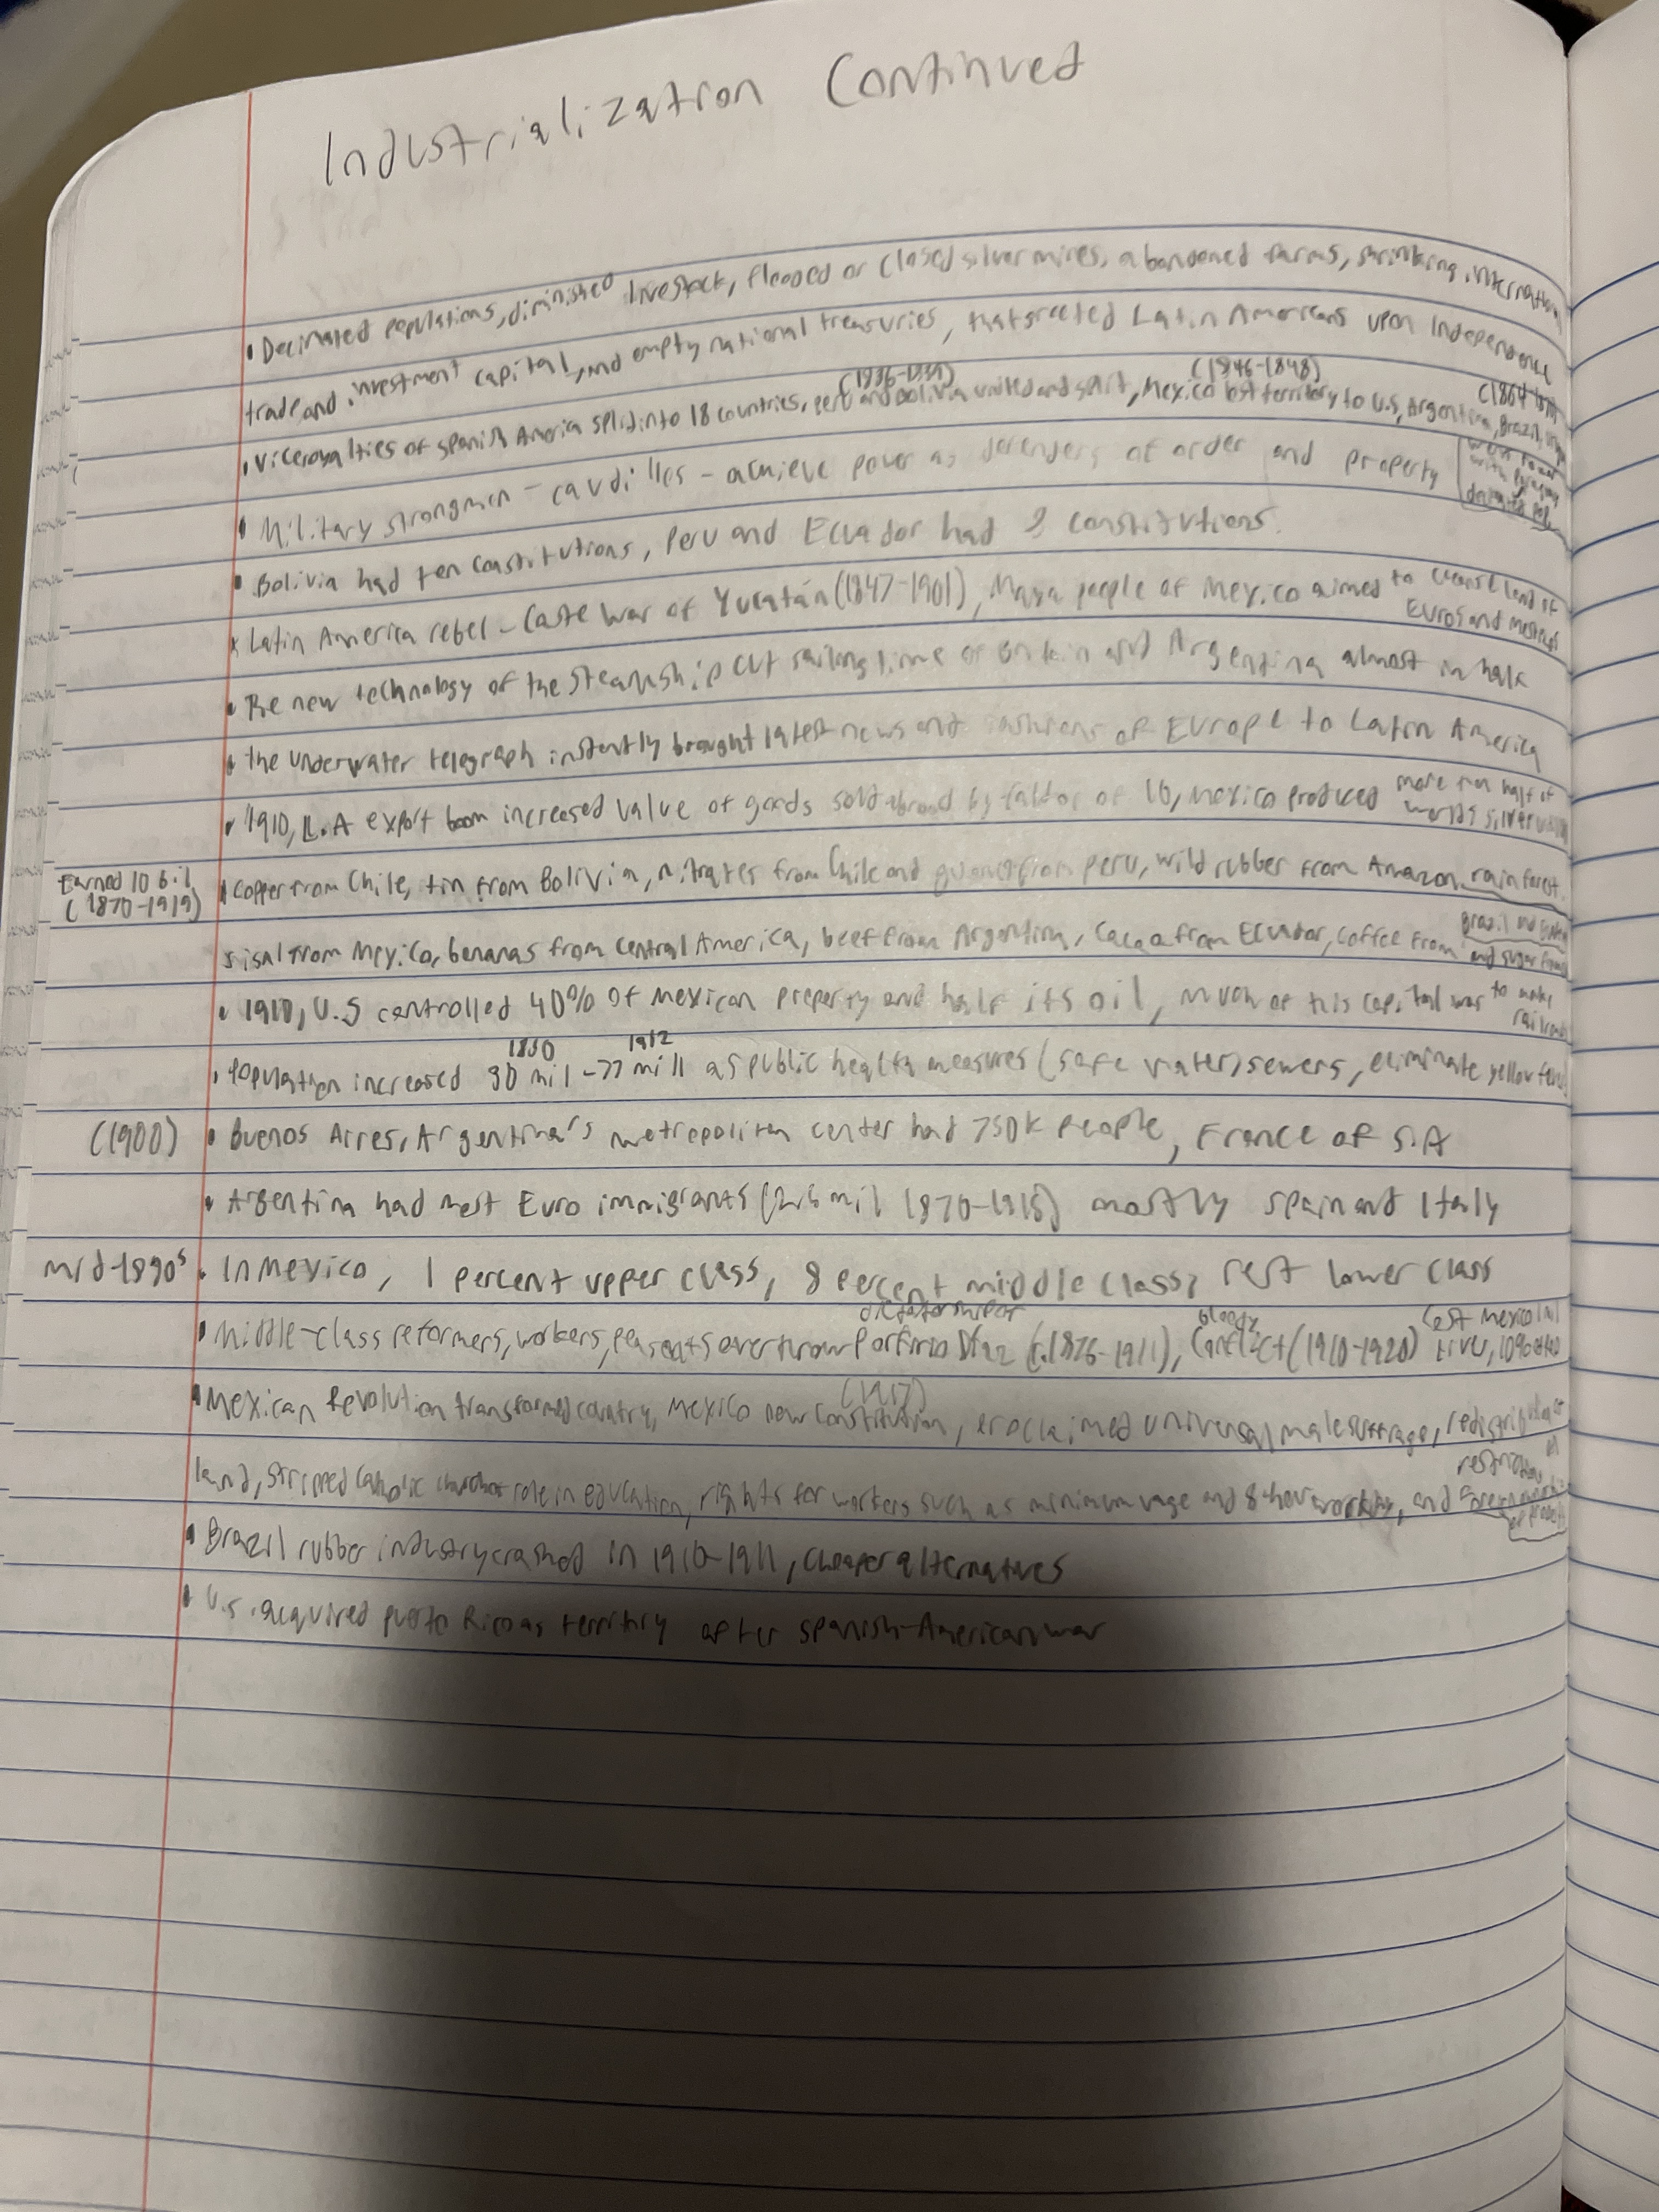 Industrialization Continued
• Decimated populations, diminished livestock, flooded or closed silver mines, abandoned farms, shrinking international
trade and investment capital, and empty national treasuries, that greeted Latin Americans upon Independence
(1836-1839) (1846-1848) (1864
• Viceroyalties of Spanish America split into 18 countries, Peru and Bolivia united and split, Mexico lost territory to U.S, Argentina, Brazil,
• Military strongmen - caudillos - achieve power as defenders of order and property
went to war
with Paraguay
• Bolivia had ten constitutions, Peru and Ecuador had 8 constitutions.
• Latin America rebel - Caste War of Yucatán (1847-1901), Maya people of Mexico aimed to cleanse land of
Euros and mestizos
• The new technology of the steamship cut sailing time of Britain and Argentina almost in half
• the underwater telegraph instantly brought latest news and fashions of Europe to Latin America
• 1910, L.A export boom increased value of goods sold abroad by factor of 10, Mexico produced more than half of
worlds silver
Earned 10 bil
(1870-1919)
• Copper from Chile, tin from Bolivia, nitrates from Chile and guano from Peru, wild rubber from Amazon rainforest,
sisal from Mexico, bananas from Central America, beef from Argentina, Cacao from Ecuador, coffee from Brazil and
and sugar from
• 1910, U.S controlled 40% of Mexican property and half its oil, much of this capital was to make
railroads
1850 1912
• Population increased 30 mil - 77 mill as public health measures (safe water, sewers, eliminate yellow fever
(1900) • Buenos Aires, Argentina's metropolitan center had 750k people, France of S.A
• Argentina had most Euro immigrants (2.5 mil 1870-1915) mostly Spain and Italy
mid-1890s • In Mexico, 1 percent upper class, 8 percent middle class, rest lower class
dictatorship of bloody cost Mexico 1 mil
• Middle-class reformers, workers, peasants overthrow Porfirio Díaz (r. 1876-1911), Conflict (1910-1920) lives, 10%
(1917)
• Mexican Revolution transformed country, Mexico new constitution, proclaimed universal male suffrage, redistribution of
land, stripped Catholic church of role in education, rights for workers such as minimum wage and 8-hour workday, and
restriction of
foreign
of property
• Brazil rubber industry crashed in 1910-1911, cheaper alternatives
• U.S. acquired Puerto Rico as territory after Spanish-American war